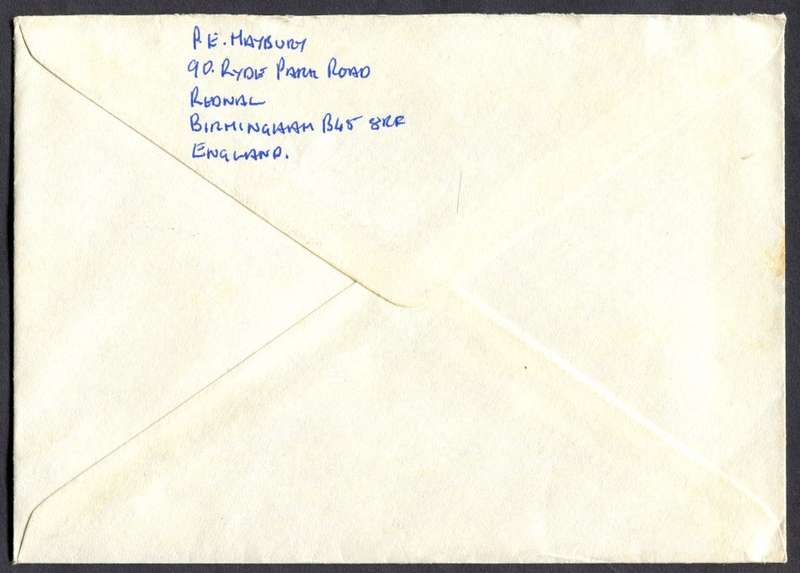 P.E. MAYBURY
90. RYDE PARK ROAD
REDNAL
BIRMINGHAM B45 8RF
ENGLAND.